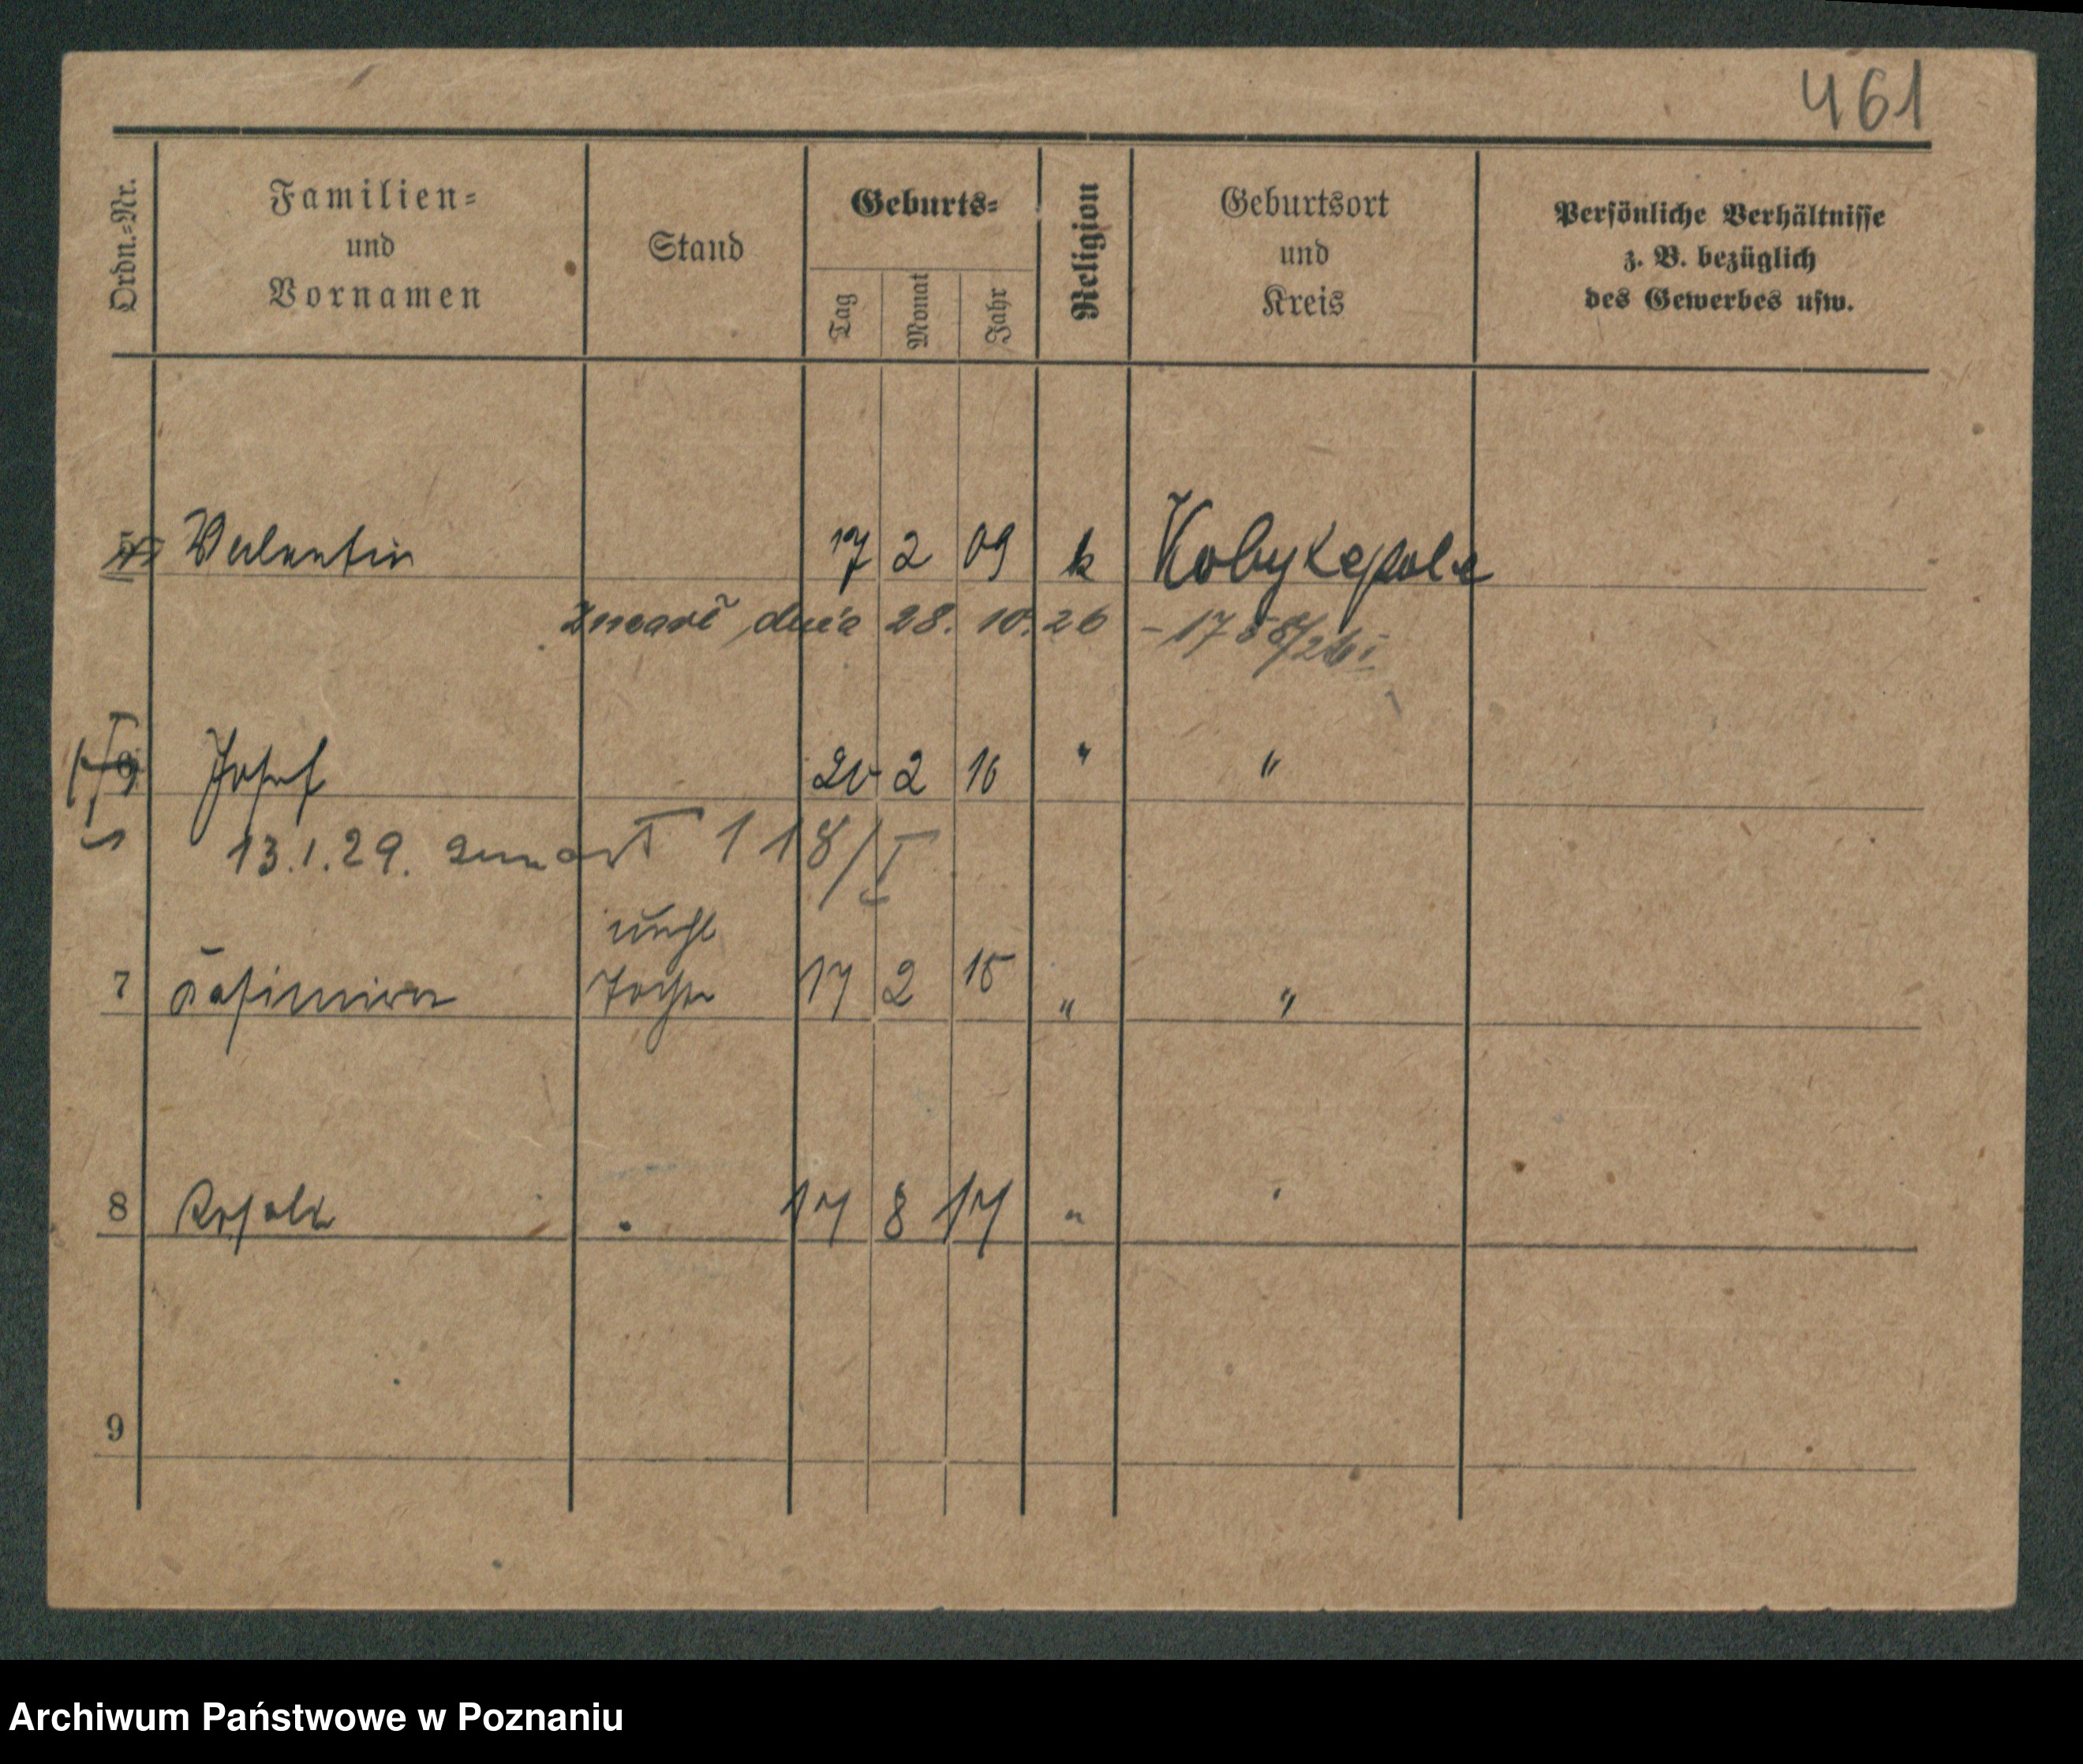 461
Ordn.-Nr.
Familien-
und
Vornamen
Stand
Geburts-
Tag
Monat
Jahr
Religion
Geburtsort
und
Kreis
Persönliche Verhältnisse
z. B. bezüglich
des Gewerbes usw.
Valentin 17 2 09 k Kobylepole
zmarł dnia 28. 10. 26 - 1758/26
6 Josef 20 2 16 " "
13.1.29. zmarł 118/I
unehl
7 Kasimira Tochter 17 2 15 " "
8 Rosalie " 17 8 17 " "
9
Archiwum Państwowe w Poznaniu